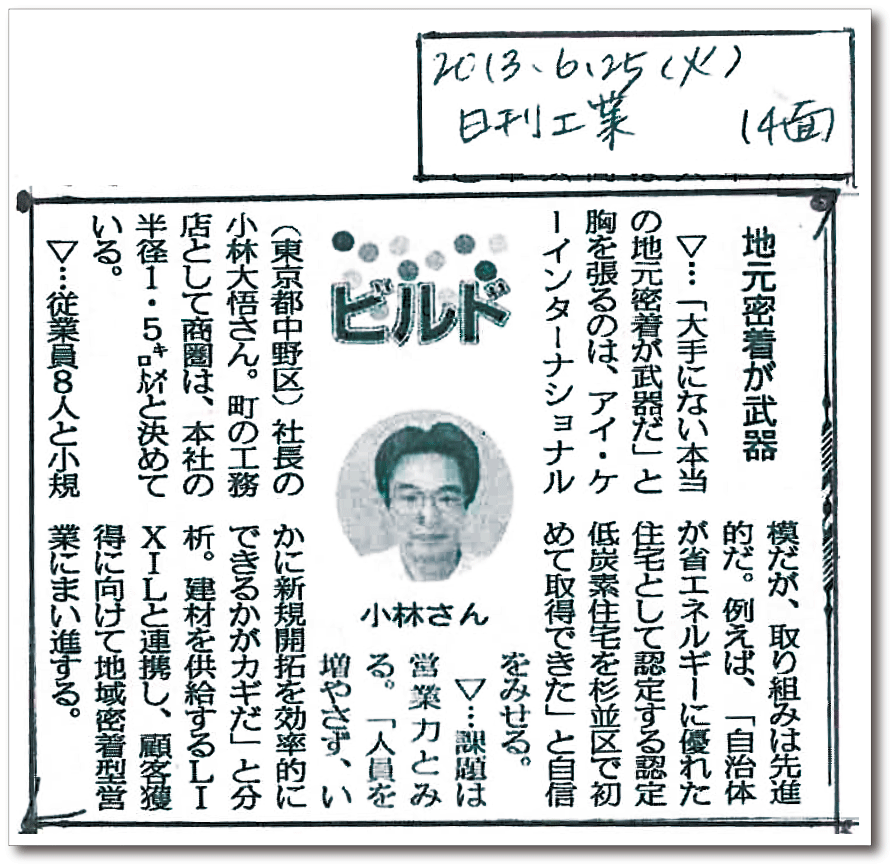 2013.6.25(火)
日刊工業 14面
地元密着が武器
▽…「大手にない本当
の地元密着が武器だ」と
胸を張るのは、アイ・ケ
ーインターナショナル
ビルド
（東京都中野区）社長の
小林大悟さん。町の工務
店として商圏は、本社の
半径1・5㌔㍍と決めて
いる。
▽…従業員8人と小規
模だが、取り組みは先進
的だ。例えば、「自治体
が省エネルギーに優れた
住宅として認定する認定
低炭素住宅を杉並区で初
めて取得できた」と自信
をみせる。
▽…課題は
営業力とみ
る。「人員を
増やさず、い
かに新規開拓を効率的に
できるかがカギだ」と分
析。建材を供給するLI
XILと連携し、顧客獲
得に向けて地域密着型営
業にまい進する。
小林さん